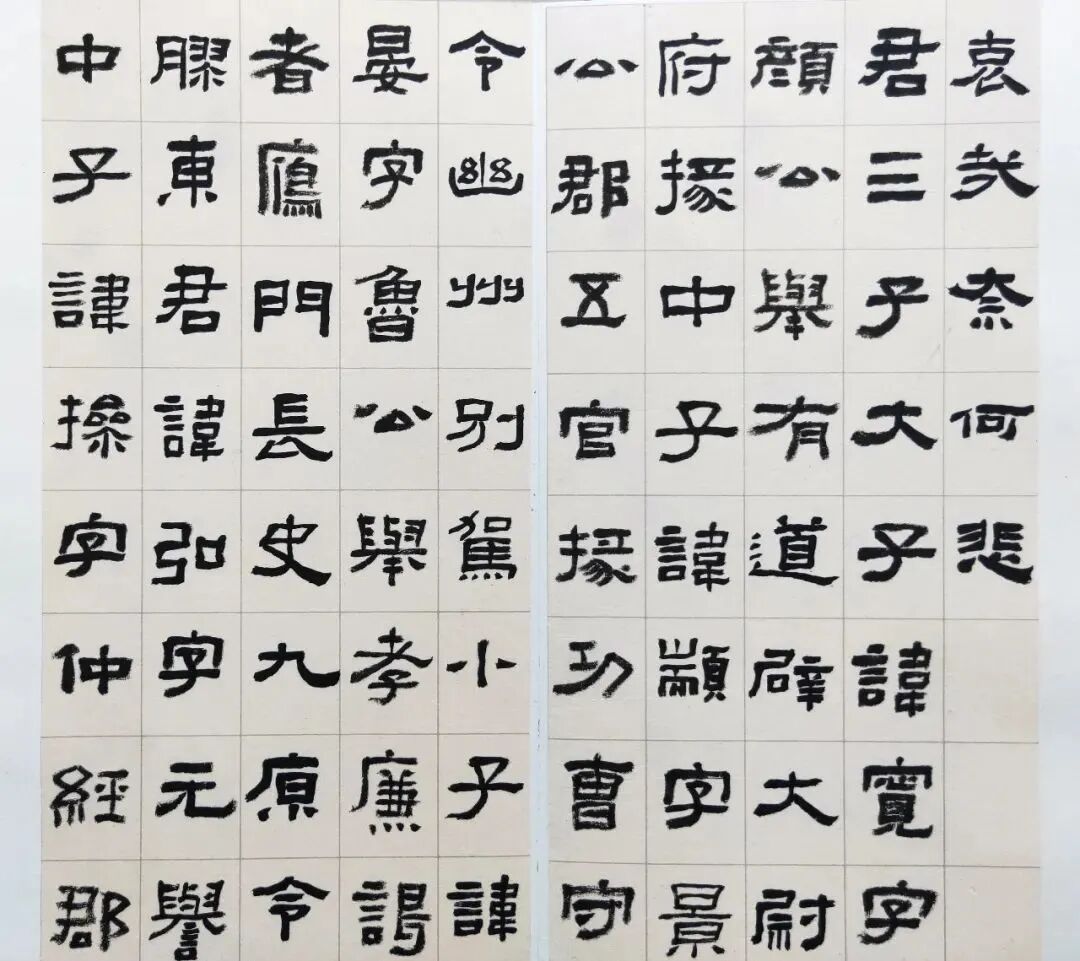 哀哉奈何悲
君三子大子諱寬字
顏公舉有道辟大尉
府掾中子諱顓字景
公郡五官掾功曹守
令幽州別駕小子諱
晏字魯公舉孝廉謁
者鴈門長史九原令
膠東君諱弘字元譽
中子諱操字仲經郡